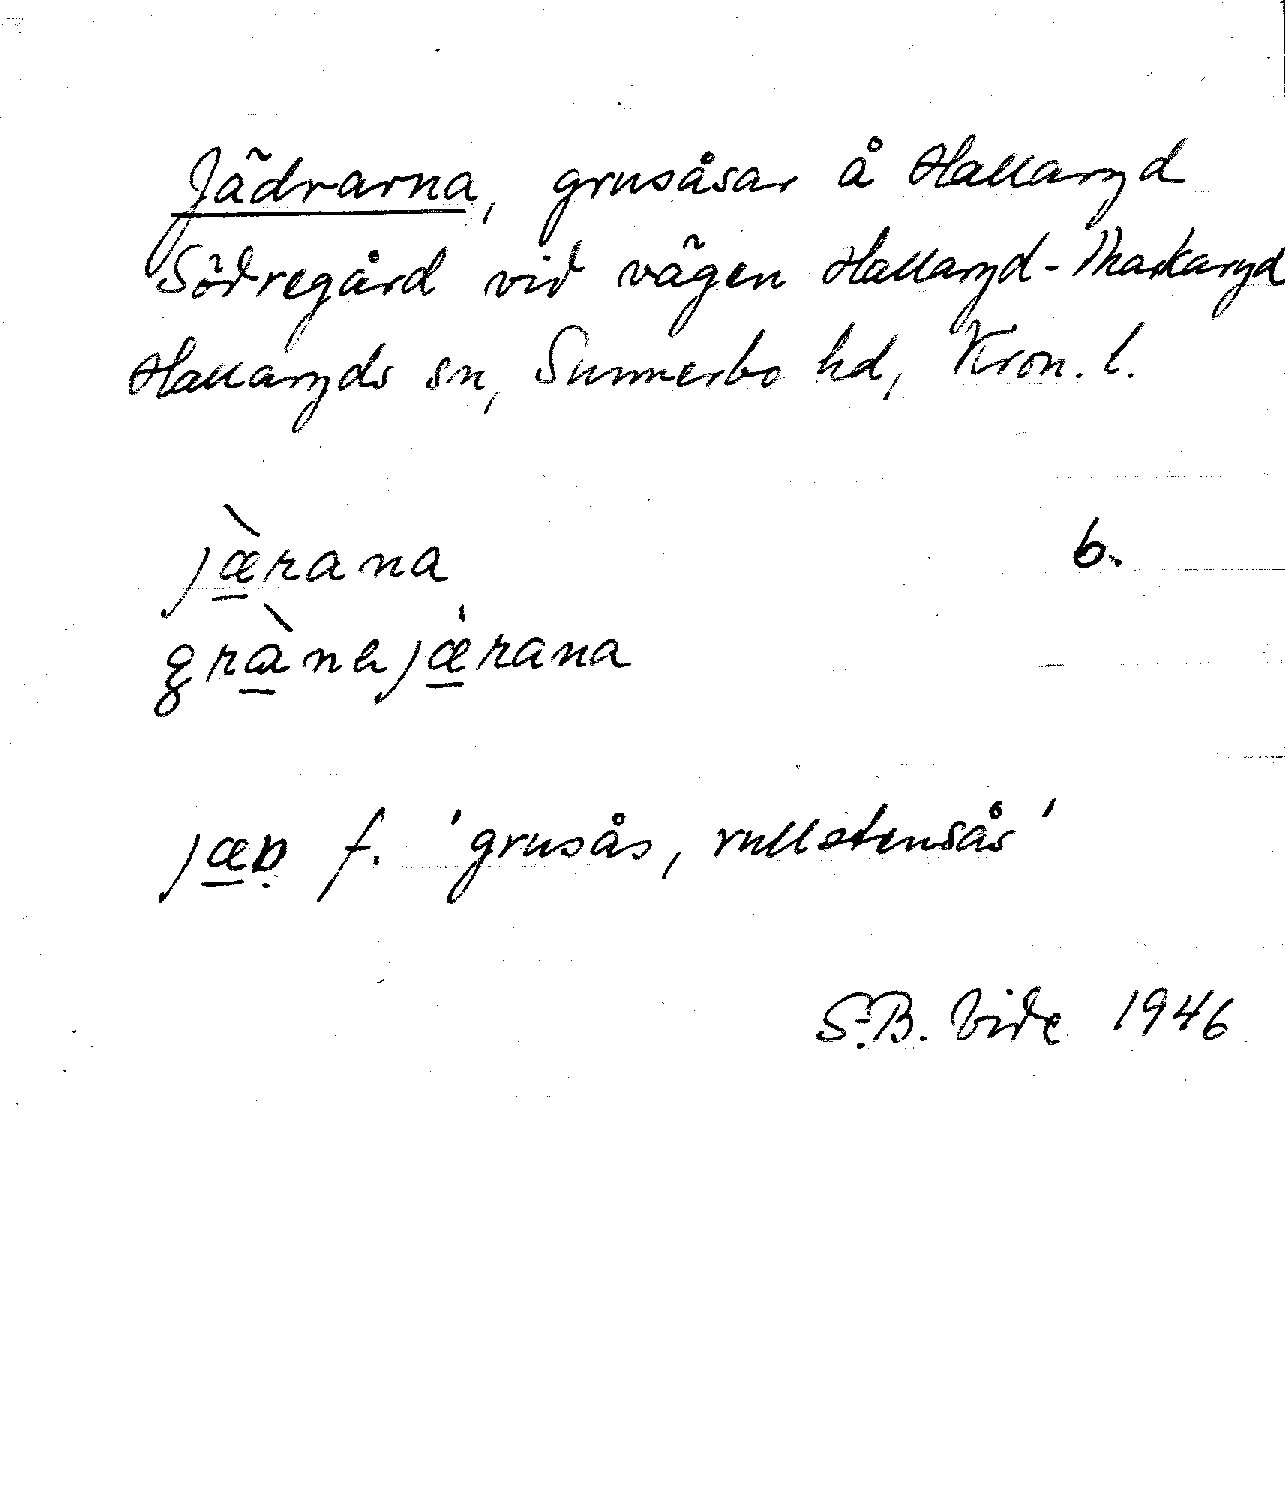 Jädrarna, grusåsar å Hallaryd
Södregård vid vägen Hallaryd-Markaryd
Hallaryds sn, Sunnerbo hd, Kron. l.
jæ̀rana
b.
grànajæ̀rana
jæṛ f. 'grusås, rullstensås'
S.B. Vide 1946